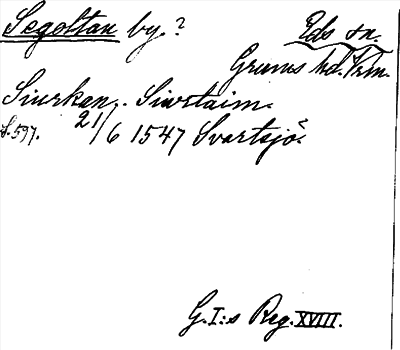 Segoltan by.?
Eds sn.
Grums hd. Vrm.
Siurken, . Siurtaim.
S. 597. 21/6 1547 Svartsjö.
G. I:s Reg. XVIII.